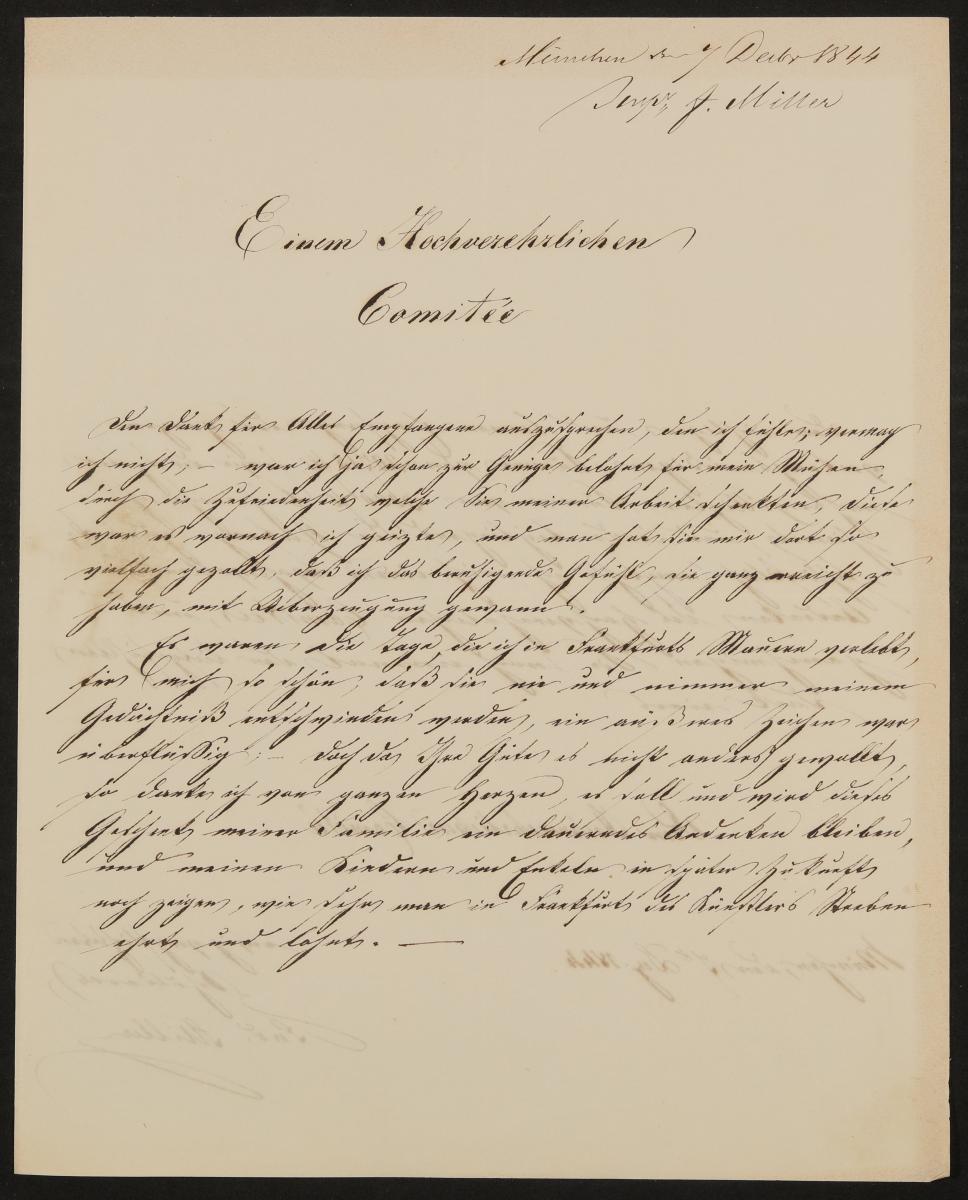 München den 7 Decbr 1844
Insp. F. Miller
Einem Hochverehrlichen
Comitée
Den Dank für Alles Empfangene auszusprechen, den ich fühle, vermag
ich nicht; – war ich ja schon zur Genüge belohnt für mein Mühen
durch die Zufriedenheit welche Sie meiner Arbeit schenkten, diese
war es wornach ich geizte, und man hat sie mir dort so
vielfach gezollt, daß ich das beruhigende Gefühl, sie ganz erreicht zu
haben, mit Ueberzeugung gewann.
Es waren die Tage, die ich in Frankfurts Mauern verlebt,
für mich so schön, daß sie nie und nimmer meinem
Gedächtniß entschwinden werden, ein äußeres Zeichen war
überflüssig; – doch da Ihre Güte es nicht anders gewollt,
so danke ich von ganzem Herzen, es soll und wird dieses
Geschenk meiner Familie ein dauerndes Andenken bleiben,
und meinen Kindern und Enkeln in später Zukunft
noch zeigen, wie sehr man in Frankfurt des Künstlers Streben
ehrt und lohnt. —